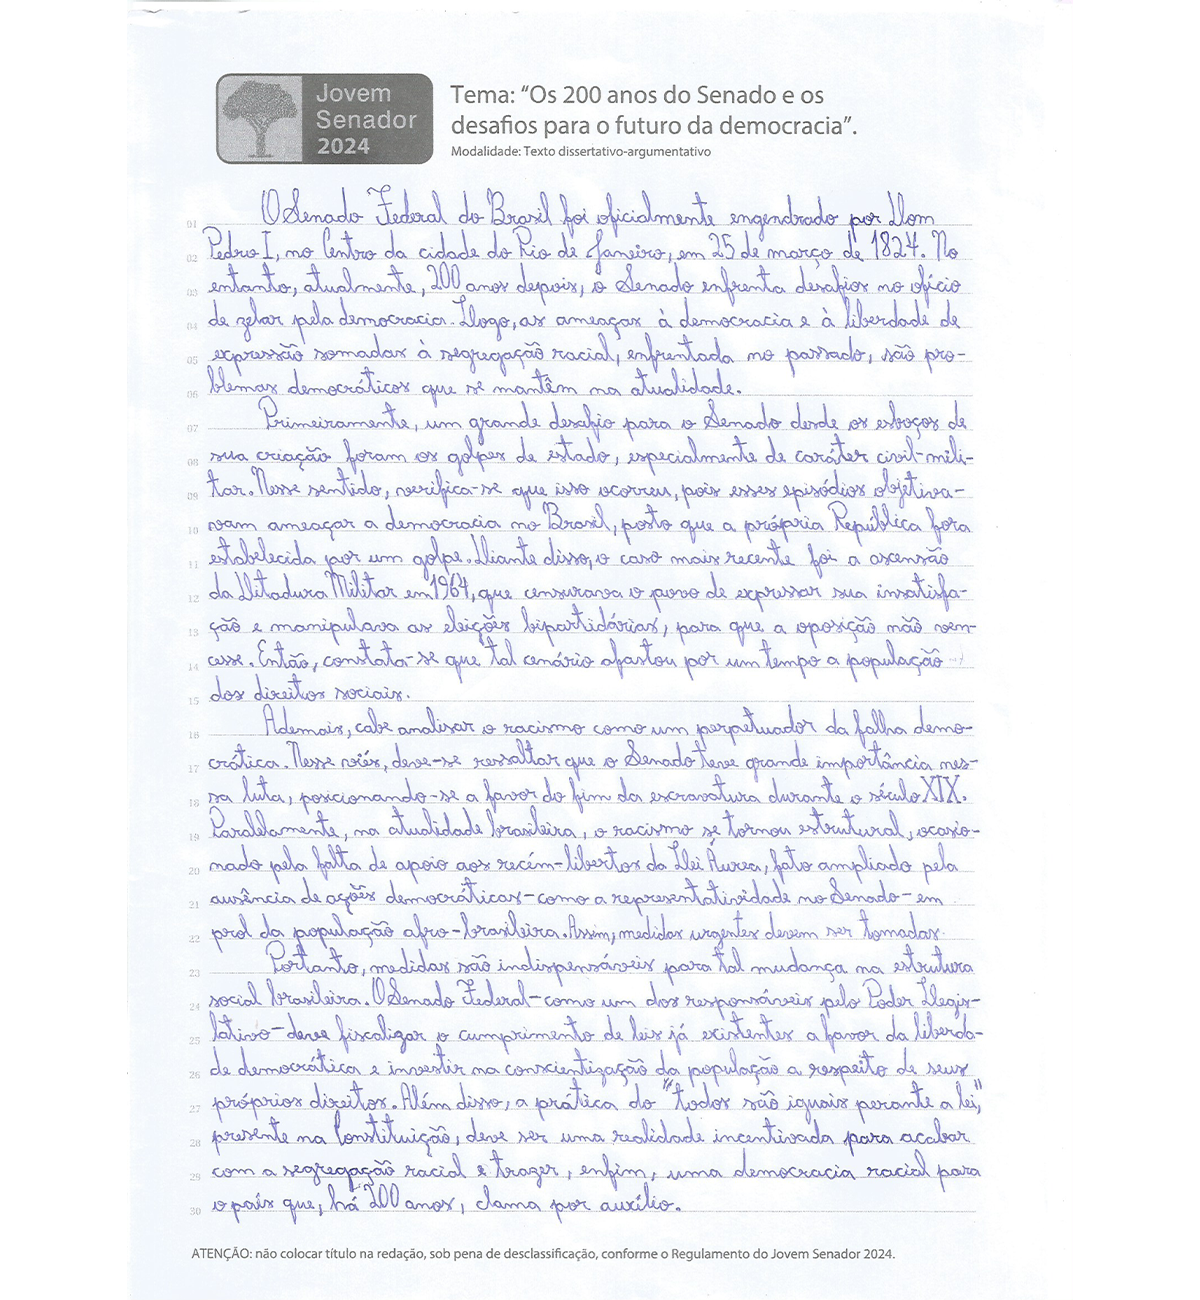 Jovem
Senador
2024
Tema: “Os 200 anos do Senado e os
desafios para o futuro da democracia”.
Modalidade: Texto dissertativo-argumentativo
01 O Senado Federal do Brasil foi oficialmente engendrado por Dom
02 Pedro I, no Centro da cidade do Rio de Janeiro, em 25 de março de 1824. No
03 entanto, atualmente, 200 anos depois, o Senado enfrenta desafios no ofício
04 de zelar pela democracia. Logo, as ameaças à democracia e à liberdade de
05 expressão somadas à segregação racial, enfrentada no passado, são pro-
06 blemas democráticos que se mantêm na atualidade.
07 Primeiramente, um grande desafio para o Senado desde os esboços de
08 sua criação foram os golpes de estado, especialmente de caráter civil-mili-
09 tar. Nesse sentido, verifica-se que isso ocorreu, pois esses episódios objetiva-
10 vam ameaçar a democracia no Brasil, posto que a própria República fora
11 estabelecida por um golpe. Diante disso, o caso mais recente foi a ascensão
12 da Ditadura Militar em 1964, que censurava o povo de expressar sua insatisfa-
13 ção e manipulava as eleições bipartidárias, para que a oposição não ven-
14 cesse. Então, constata-se que tal cenário afastou por um tempo a população
15 dos direitos sociais.
16 Ademais, cabe analisar o racismo como um perpetuador da falha demo-
17 crática. Nesse viés, deve-se ressaltar que o Senado teve grande importância nes-
18 sa luta, posicionando-se a favor do fim da escravatura durante o século XIX.
19 Paralelamente, na atualidade brasileira, o racismo se tornou estrutural, ocasio-
20 nado pela falta de apoio aos recém-libertos da Lei Áurea, fato ampliado pela
21 ausência de ações democráticas-como a representatividade no Senado-em
22 prol da população afro-brasileira. Assim, medidas urgentes devem ser tomadas.
23 Portanto, medidas são indispensáveis para tal mudança na estrutura
24 social brasileira. O Senado Federal-como um dos responsáveis pelo Poder Legis-
25 lativo-deve fiscalizar o cumprimento de leis já existentes a favor da liberda-
26 de democrática e investir na conscientização da população a respeito de seus
27 próprios direitos. Além disso, a prática do "todos são iguais perante a lei,"
28 presente na Constituição, deve ser uma realidade incentivada para acabar
29 com a segregação racial e trazer, enfim, uma democracia racial para
30 o país que, há 200 anos, clama por auxílio.
ATENÇÃO: não colocar título na redação, sob pena de desclassificação, conforme o Regulamento do Jovem Senador 2024.